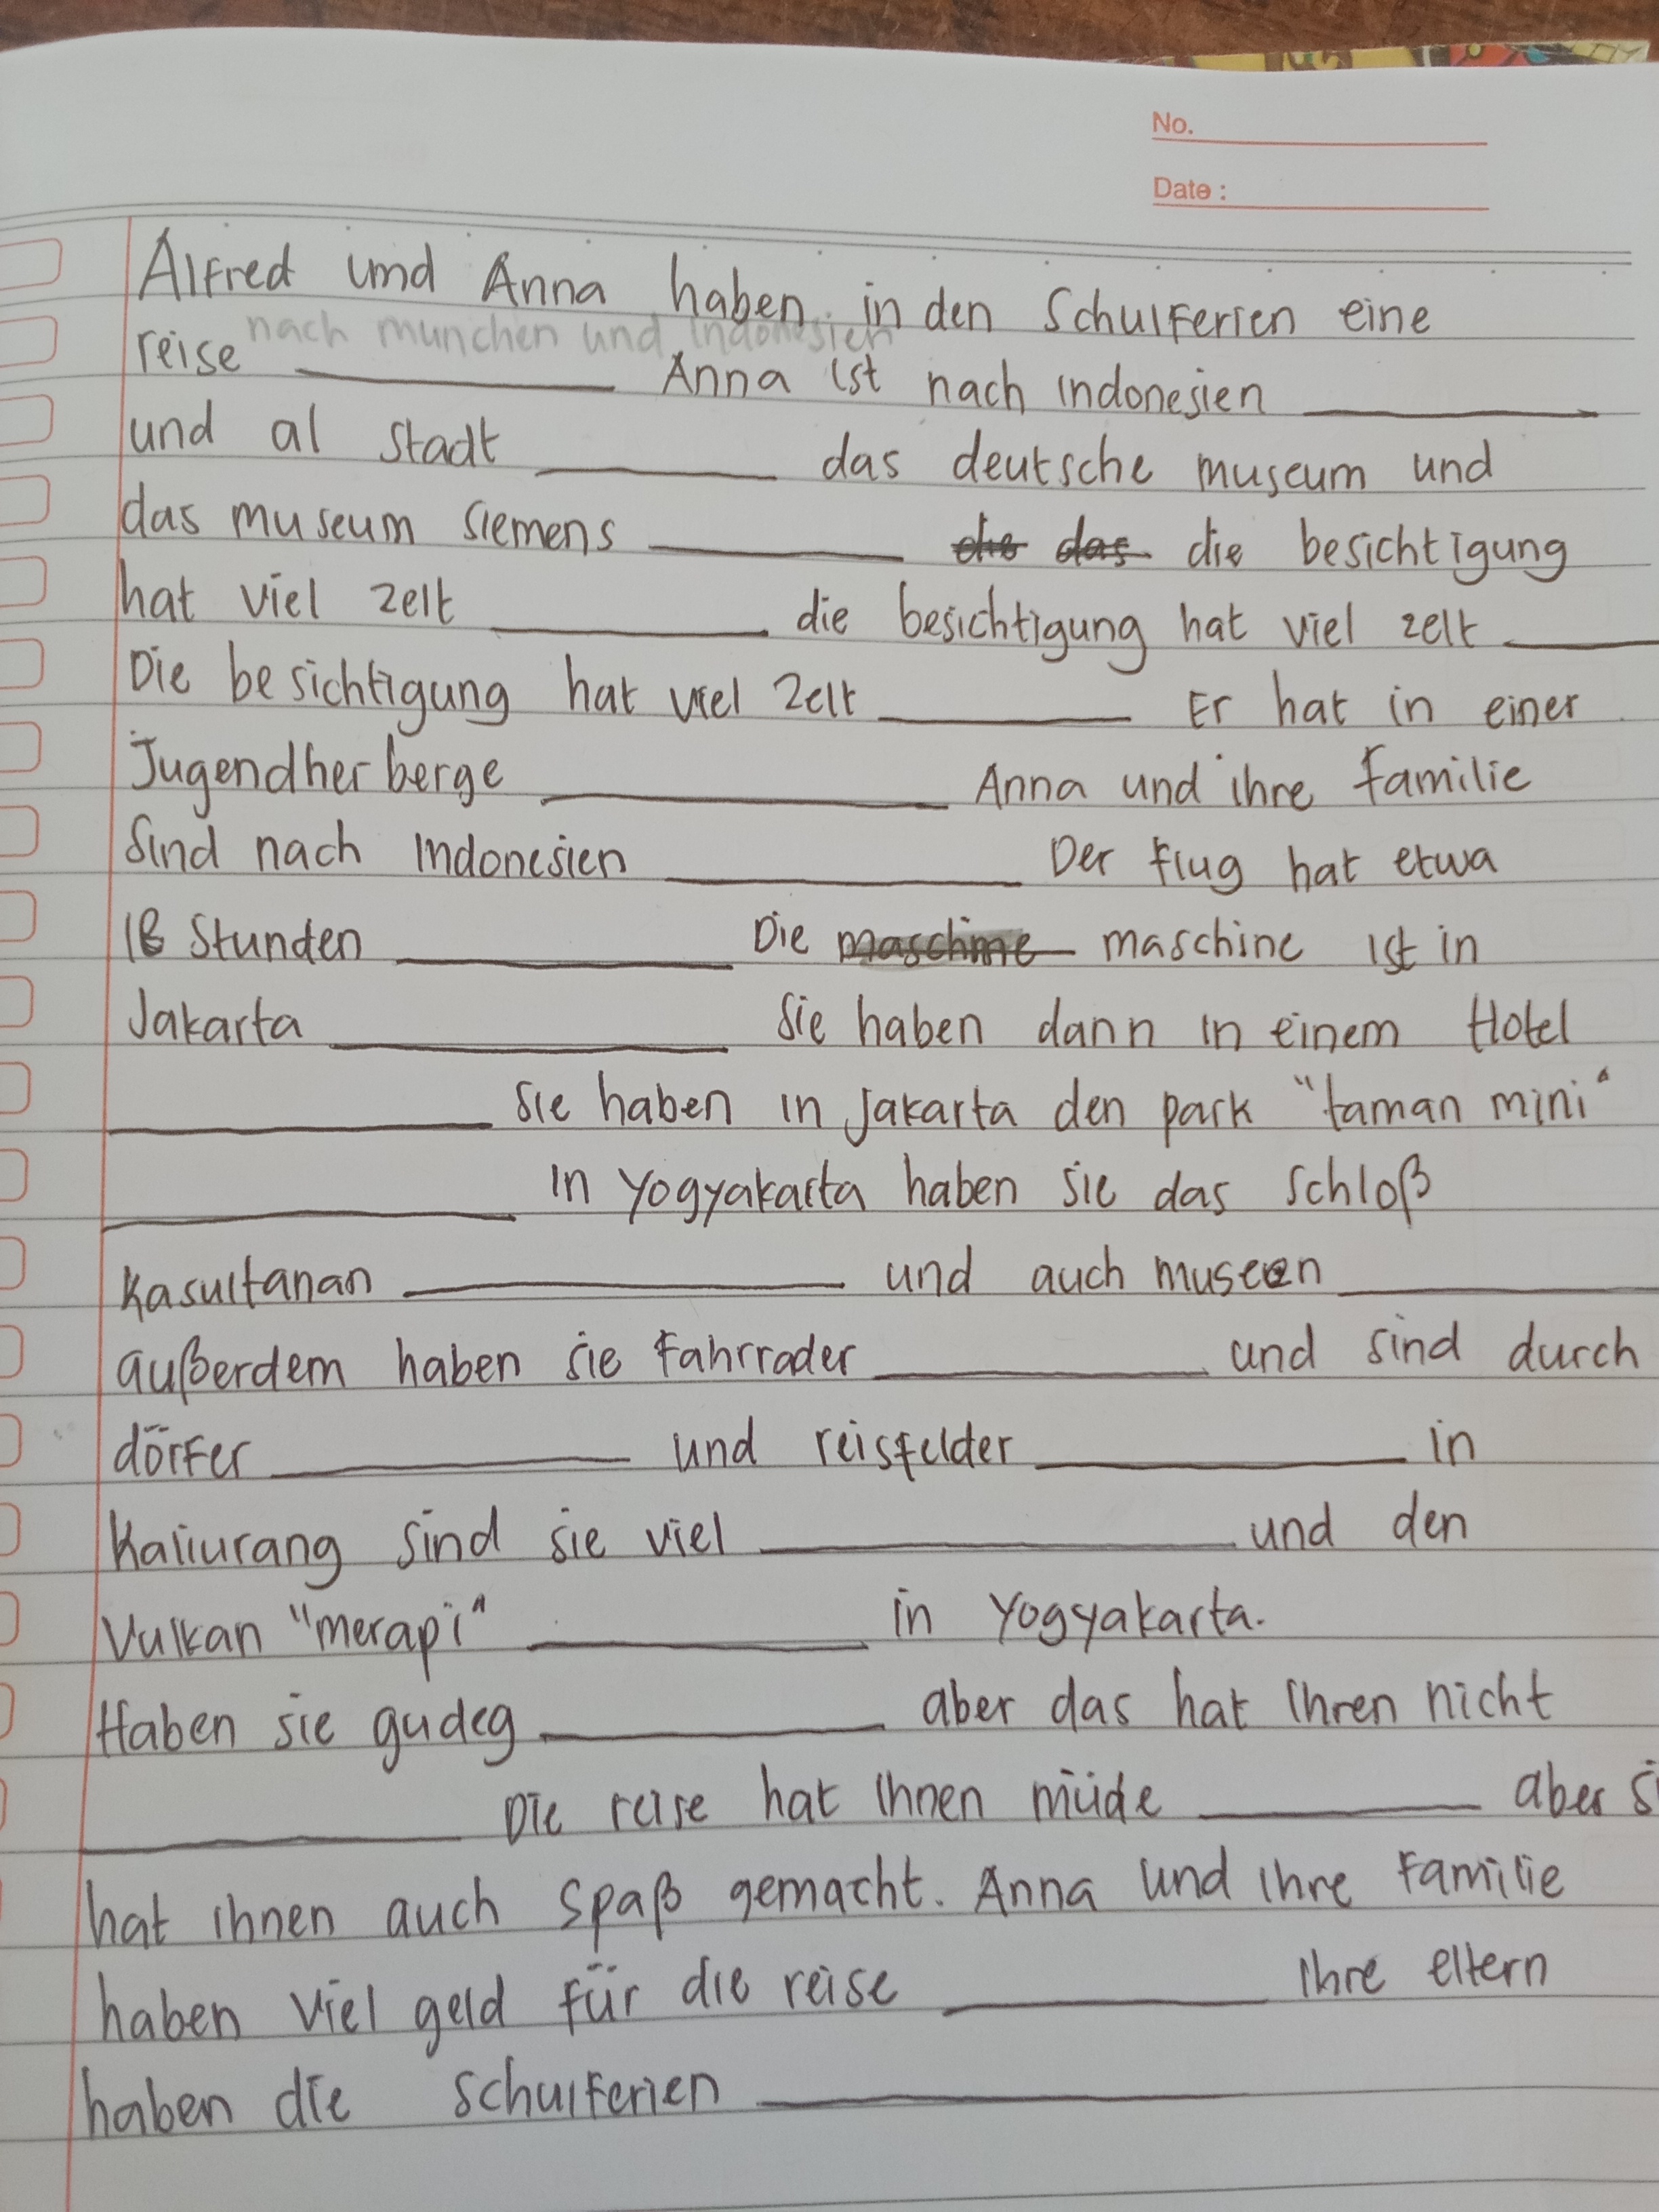 No.
Date :
Alfred und Anna haben in den Schulferien eine
reise nach munchen und indonesien Anna ist nach indonesien
und al stadt das deutsche museum und
das museum siemens die das die besichtigung
hat viel zeit die besichtigung hat viel zeit
Die besichtigung hat viel zeit Er hat in einer
Jugendherberge Anna und ihre familie
Sind nach Indonesien Der flug hat etwa
Stunden Die maschine maschine ist in
Jakarta Sie haben dann in einem Hotel
Sie haben in Jakarta den park "taman mini"
In Yogyakarta haben sie das schloß
Kasultanan und auch museen
außerdem haben sie fahrrader und sind durch
dörfer und reisfelder in
Kaliurang sind sie viel und den
Vulkan "merapi" in Yogyakarta.
Haben sie gudeg aber das hat ihren nicht
Die reise hat ihnen müde aber si
hat ihnen auch spaß gemacht. Anna und ihre familie
haben viel geld für die reise Ihre eltern
haben die schulferien